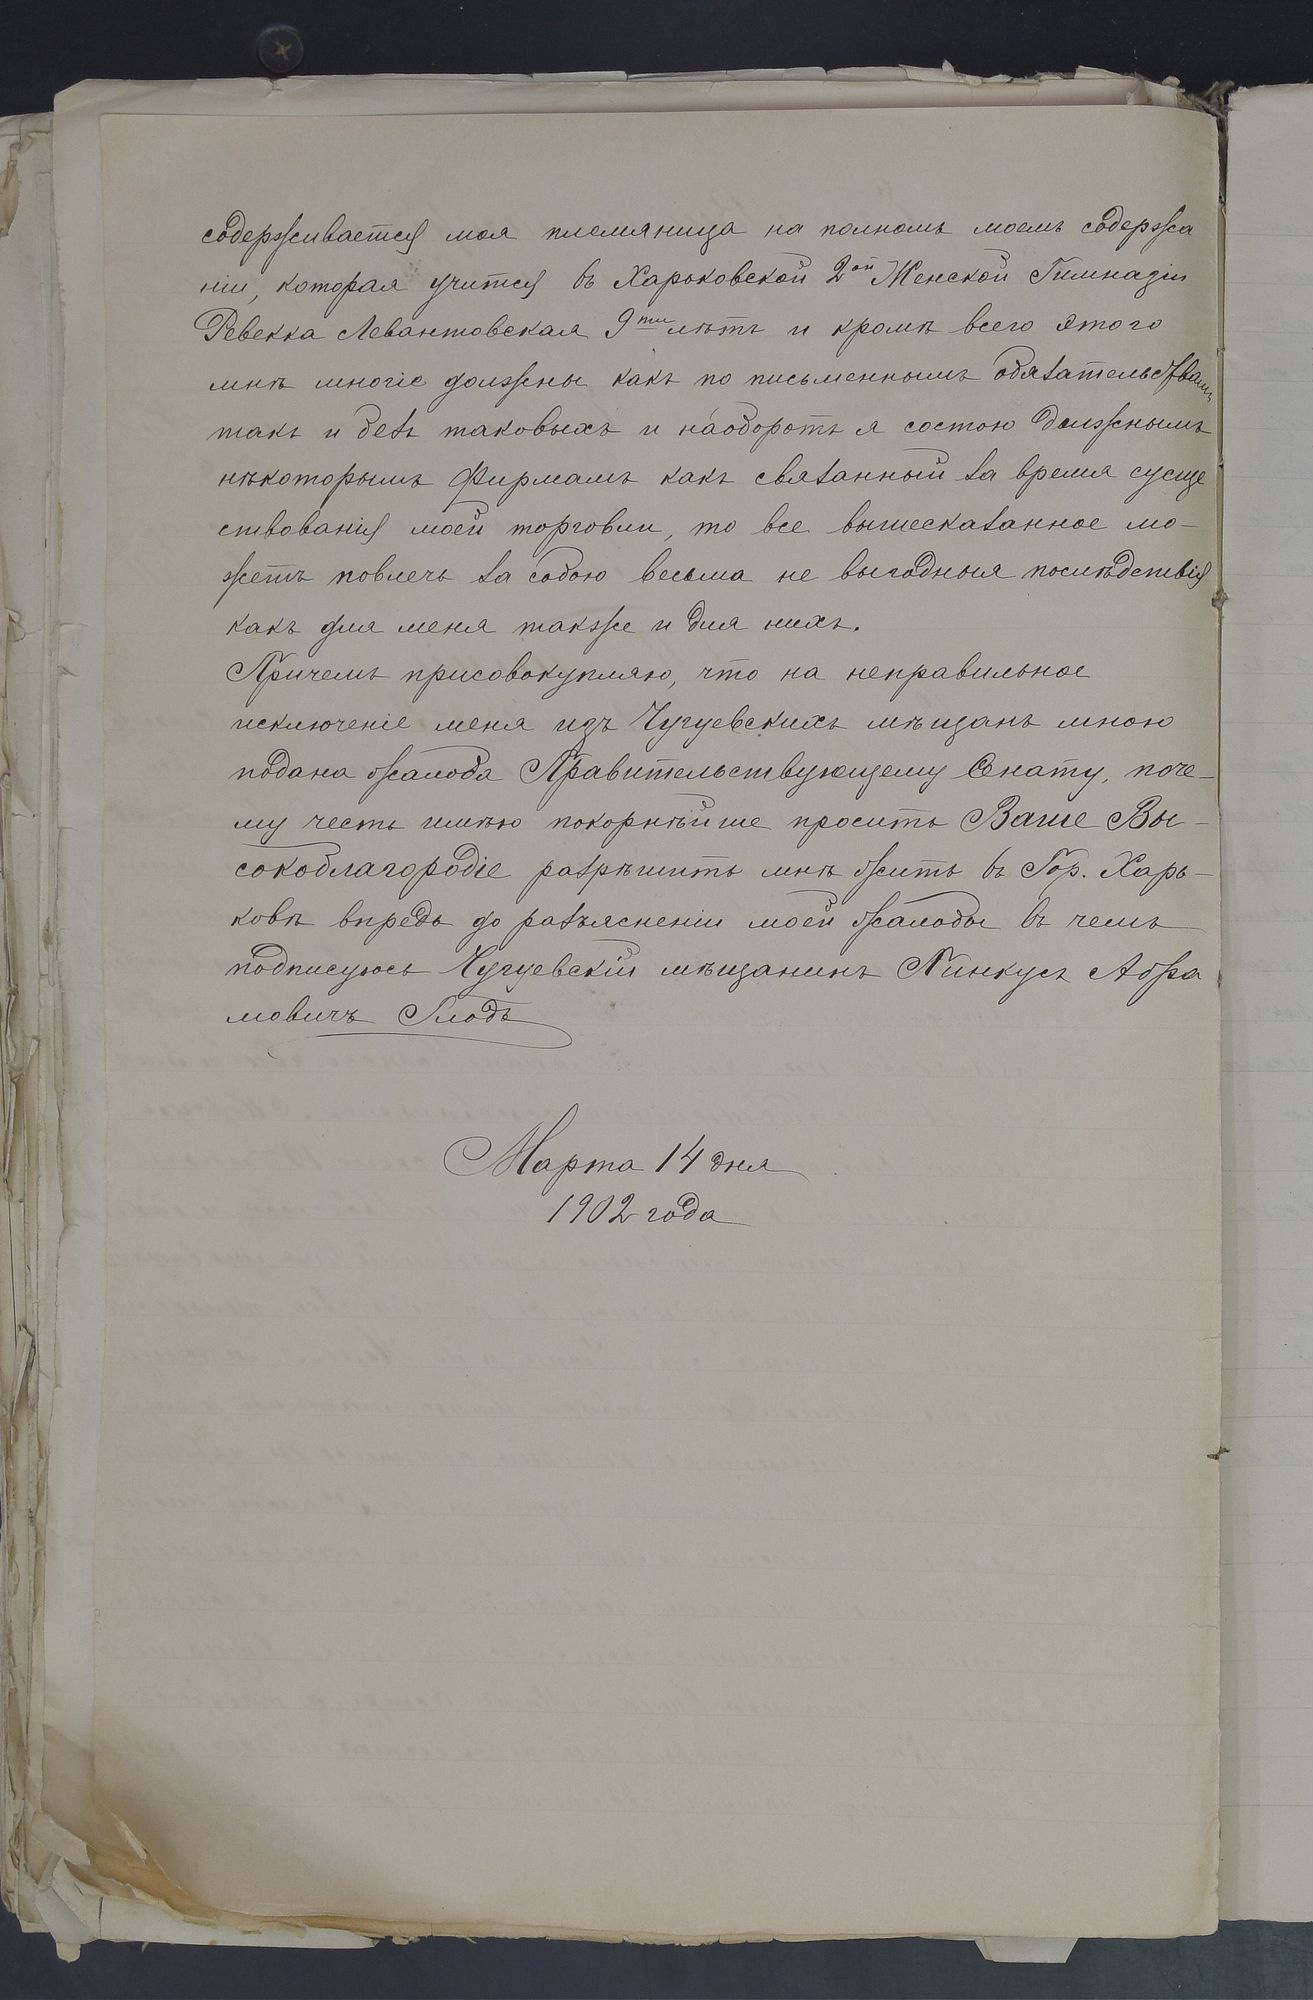 содерживается моя племяница на полномъ моемъ содержа
ніи, которая учится въ Харьковской 2ой Женской Гимназіи
Ревекка Левантовская 9ти лѣтъ и кромѣ всего этого
мнѣ многіе должены какъ по письменнымъ обязательствамъ
такъ и безъ таковыхъ и наоборотъ я состою долженымъ
нѣкоторымъ Фирмамъ какъ связанный за время суще
ствованія моей торговли, то все вышесказанное мо-
жетъ повлечь за собою весьма не выгодныя послѣдствія
какъ для меня такжже и для нихъ.
Причемъ присовокупляю, что на неправильное
исключеніе меня изъ Чугуевскихъ мѣщанъ мною
подана жалоба Правительствующему Сенату, поче-
му честь имѣю покорнѣйше просить Ваше Вы-
сокоблагородіе разрѣшить мнѣ жить въ Гор. Харь-
ковѣ впредь до разъясненіи моей жалобы въ чемъ
подписуюсь Чугуевскій мѣщанинъ Пинкусъ Абра
мовичъ Глодъ
Марта 14 дня
1902 года